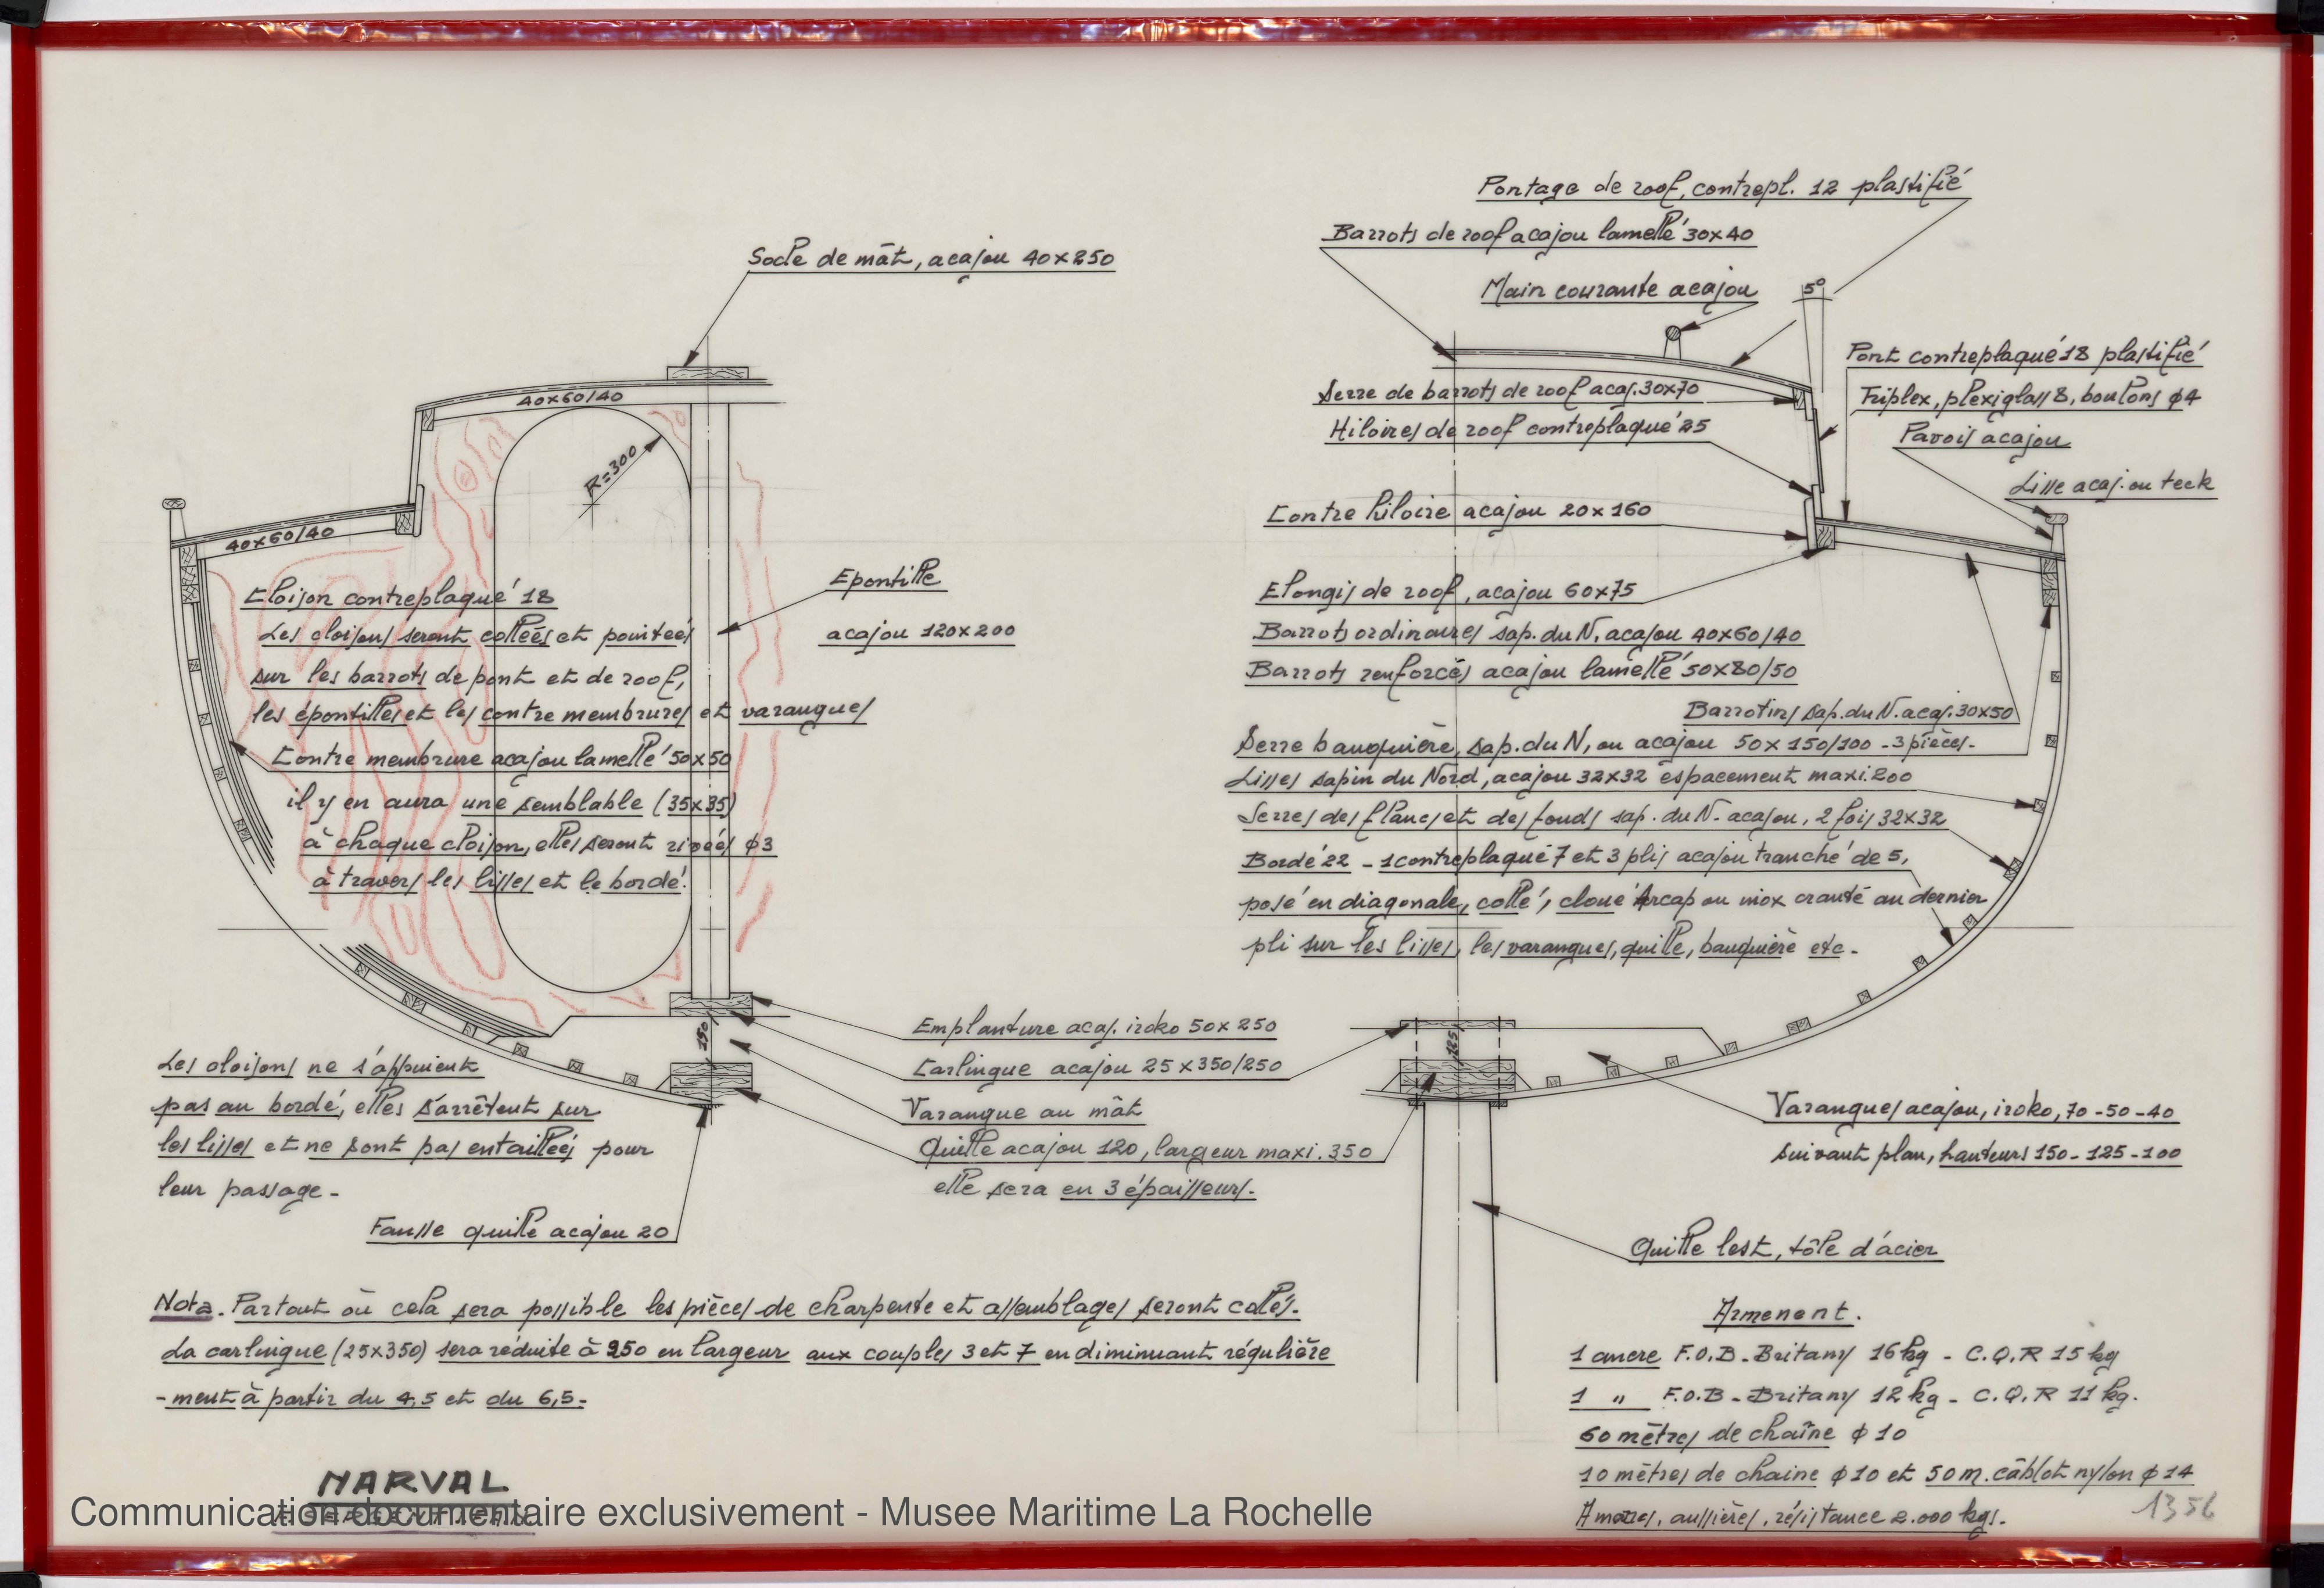 Socle de mât, acajou 40x250
40x60/40
R=300
40x60/40
Cloison contreplaqué 18
Les cloisons seront collées et pointées
sur les barrots de pont et de roof,
les épontilles et les contre membrures et varangues
Contre membrure acajou lamellé 50x50
il y en aura une semblable (35x35)
à chaque cloison, elles seront rivées φ3
à travers les lisses et le bordé.
Epontille
acajou 120x200
Les cloisons ne s'appuient
pas au bordé, elles s'arrêtent sur
les lisses et ne sont pas entaillées pour
leur passage -
Fausse quille acajou 20
150
Emplanture acaj. iroko 50x250
Carlingue acajou 25x350/250
Varangue au mât
Quille acajou 120, largeur maxi. 350
elle sera en 3 épaisseurs.
Pontage de roof, contrepl. 12 plastifié
Barrots de roof acajou lamellé 30x40
Main courante acajou
5°
Serre de barrots de roof acaj. 30x70
Hiloires de roof contreplaqué 25
Contre hiloire acajou 20x160
Pont contreplaqué 18 plastifié
Triplex, plexiglass 8, boulons φ4
Pavois acajou
Lisse acaj. ou teck
Elongis de roof, acajou 60x75
Barrots ordinaires sap. du N, acajou 40x60/40
Barrots renforcés acajou lamellé 50x80/50
Barrotins sap. du N. acaj. 30x50
Serre bauquière, sap. du N, ou acajou 50x150/100 - 3 pièces -
Lisses sapin du Nord, acajou 32x32 espacement maxi. 200
Serres des flancs et des fonds sap. du N. acajou, 2 fois 32x32
Bordé 22 - 1 contreplaqué 7 et 3 plis acajou tranché de 5,
posé en diagonale, collé, cloué Arcap ou inox cranté au dernier
pli sur les lisses, les varangues, quille, bauquière etc -
125
Varangues acajou, iroko, 70 - 50 - 40
suivant plan, hauteurs 150 - 125 - 100
Quille lest, tôle d'acier
Nota. Partout où cela sera possible les pièces de charpente et assemblages seront collés.
La carlingue (25x350) sera réduite à 250 en largeur aux couples 3 et 7 en diminuant régulière
- ment à partir du 4,5 et du 6,5 -
Armement.
1 ancre F.O.B - Britany 16 kg - C.Q.R 15 kg
1 " F.O.B - Britany 12 kg - C.Q.R 11 kg.
60 mètres de chaîne φ 10
10 mètres de chaine φ 10 et 50 m. câblot nylon φ 14
Amarres, aussières, résistance 2.000 kgs.
NARVAL
Communication documentaire exclusivement - Musee Maritime La Rochelle
1356